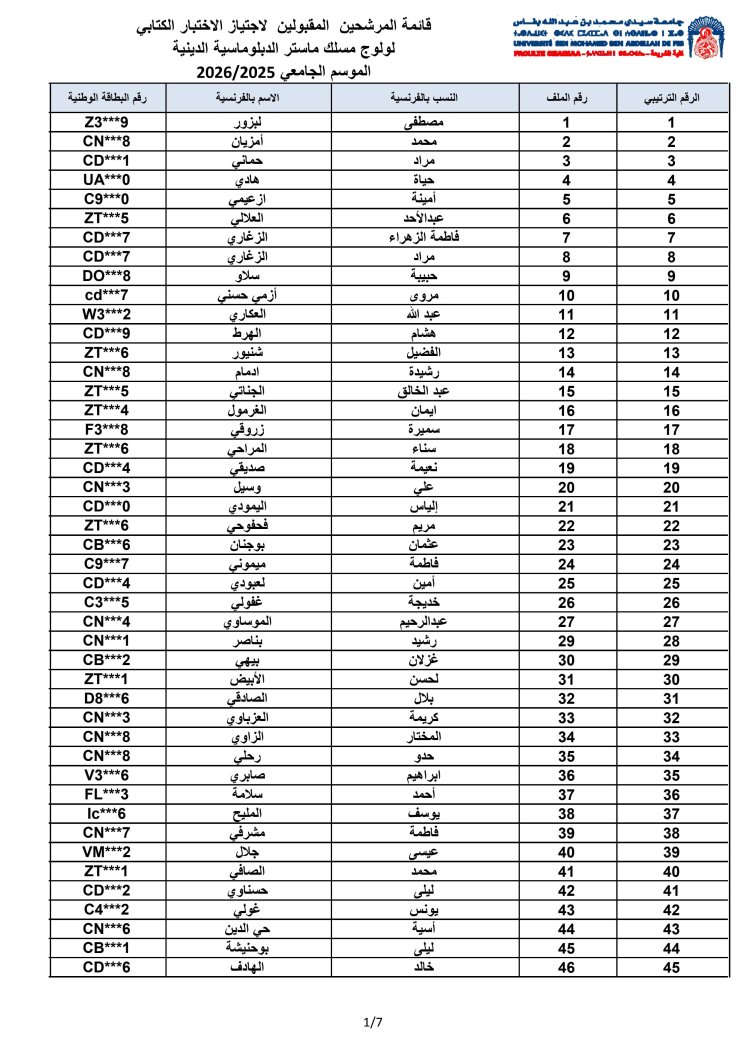 جامعة سيدي محمد بن عبد الله بفاس
UNIVERSITÉ SIDI MOHAMED BEN ABDELLAH DE FES
قائمة المرشحين المقبولين لاجتياز الاختبار الكتابي
لولوج مسلك ماستر الدبلوماسية الدينية
الموسم الجامعي 2026/2025
الرقم الترتيبي رقم الملف النسب بالفرنسية الاسم بالفرنسية رقم البطاقة الوطنية
1 1 مصطفى لبزور Z3***9
2 2 محمد أمزيان CN***8
3 3 مراد حماني CD***1
4 4 حياة هادي UA***0
5 5 أمينة ازعيمي C9***0
6 6 عبدالأحد العلالي ZT***5
7 7 فاطمة الزهراء الزغاري CD***7
8 8 مراد الزغاري CD***7
9 9 حبيبة سلاو DO***8
10 10 مروى أزمي حسني cd***7
11 11 عبد الله العكاري W3***2
12 12 هشام الهرط CD***9
13 13 الفضيل شنيور ZT***6
14 14 رشيدة ادمام CN***8
15 15 عبد الخالق الجناتي ZT***5
16 16 ايمان الغرمول ZT***4
17 17 سميرة زروقي F3***8
18 18 سناء المراحي ZT***6
19 19 نعيمة صديقي CD***4
20 20 علي وسيل CN***3
21 21 إلياس اليمودي CD***0
22 22 مريم فحفوحي ZT***6
23 23 عثمان بوجنان CB***6
24 24 فاطمة ميموني C9***7
25 25 أمين لعبودي CD***4
26 26 خديجة غفولي C3***5
27 27 عبدالرحيم الموساوي CN***4
28 29 رشيد بناصر CN***1
29 30 غزلان بيهي CB***2
30 31 لحسن الأبيض ZT***1
31 32 بلال الصادقي D8***6
32 33 كريمة العزباوي CN***3
33 34 المختار الزاوي CN***8
34 35 حدو رحلي CN***8
35 36 ابراهيم صابري V3***6
36 37 أحمد سلامة FL***3
37 38 يوسف المليح Ic***6
38 39 فاطمة مشرفي CN***7
39 40 عيسى جلال VM***2
40 41 محمد الصافي ZT***1
41 42 ليلى حسناوي CD***2
42 43 يونس غولي C4***2
43 44 أسية حي الدين CN***6
44 45 ليلى بوحنيشة CB***1
45 46 خالد الهادف CD***6
1/7